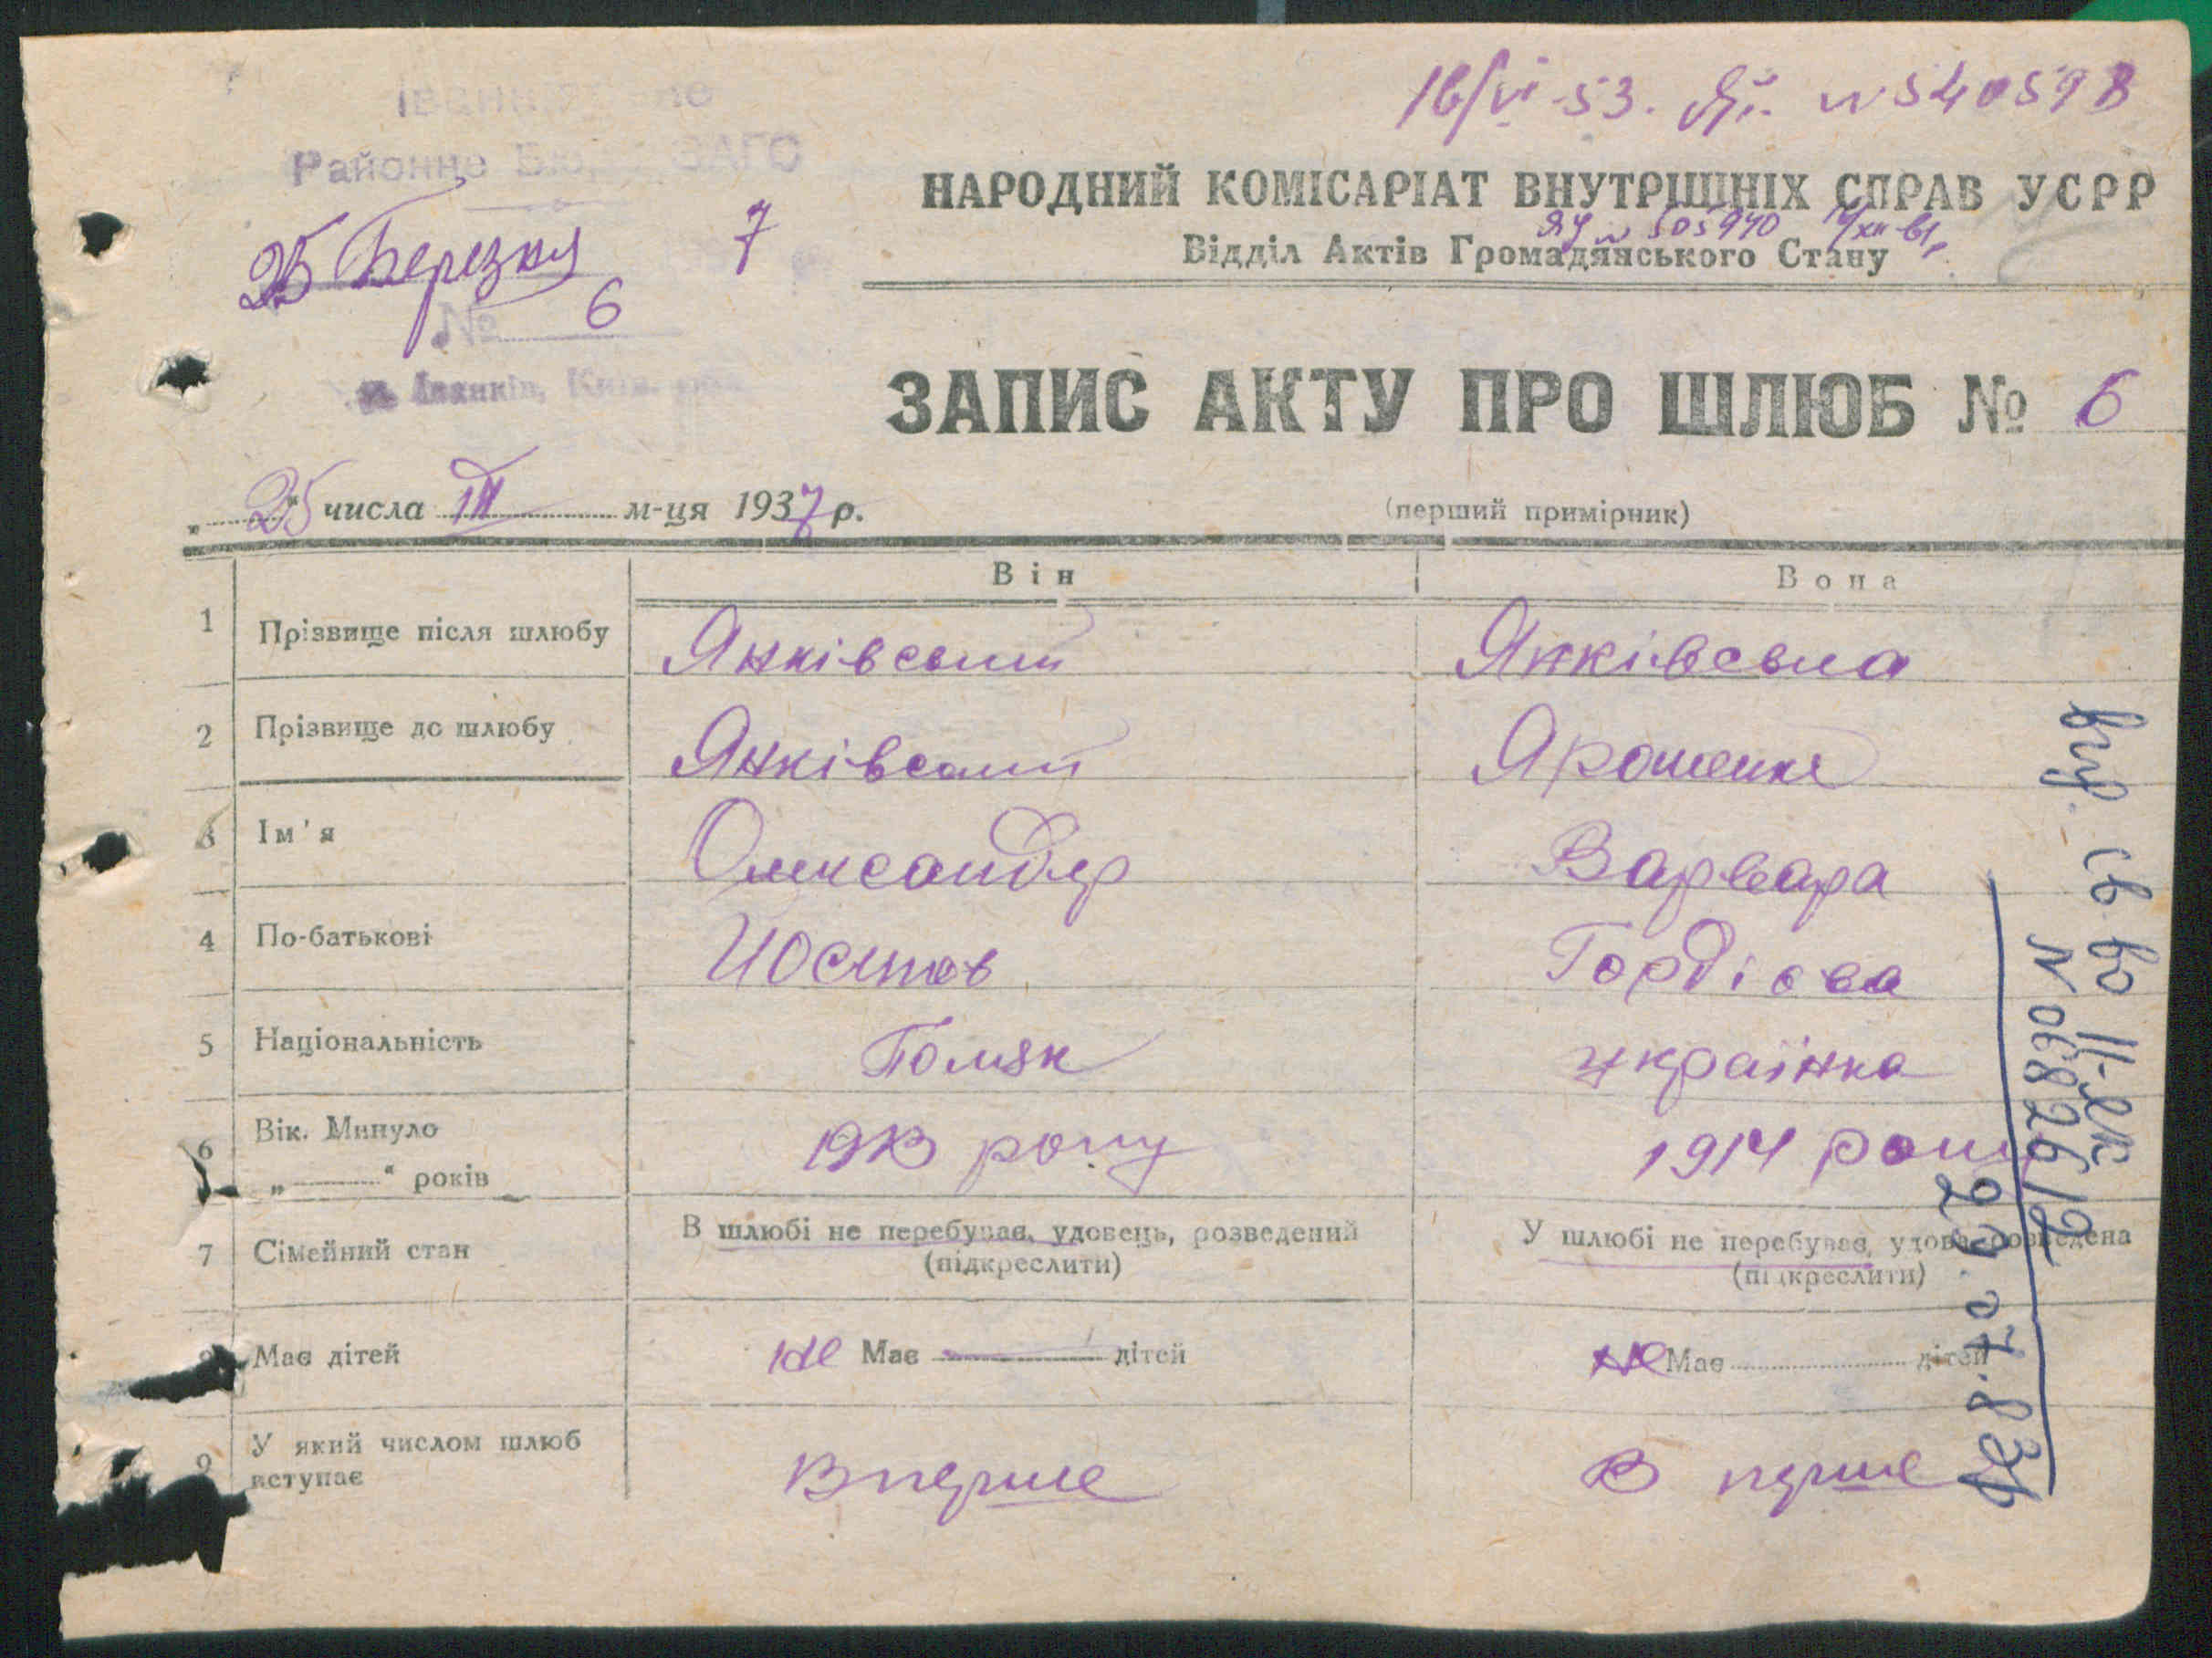 16/VI-53. № 540598
Районне ЗАГС
НАРОДНИЙ КОМІСАРІАТ ВНУТРІШНІХ СПРАВ УСРР
25 Березня 7
ЯУ № 505940
Відділ Актів Громадянського Стану
№ 6
м. Іванків, Київ. обл.
ЗАПИС АКТУ ПРО ШЛЮБ № 6
„25" числа III м-ця 1937 р.
(перший примірник)
Він Вона
1 Прізвище після шлюбу Янківський Янківська
2 Прізвище до шлюбу Янківський Ярошенко
3 Ім'я Олександр Варвара
4 По-батькові Йосипов Гордієва
5 Національність Поляк українка
6 Вік. Минуло 1913 року 1914 року
„ " років
7 Сімейний стан В шлюбі не перебував, удовець, розведений У шлюбі не перебував, удова розведена
(підкреслити) (підкреслити)
Має дітей не Має дітей не Має дітей
9 У який числом шлюб Вперше В перше
вступає
вид. св во II-
N 06826
29.07.83